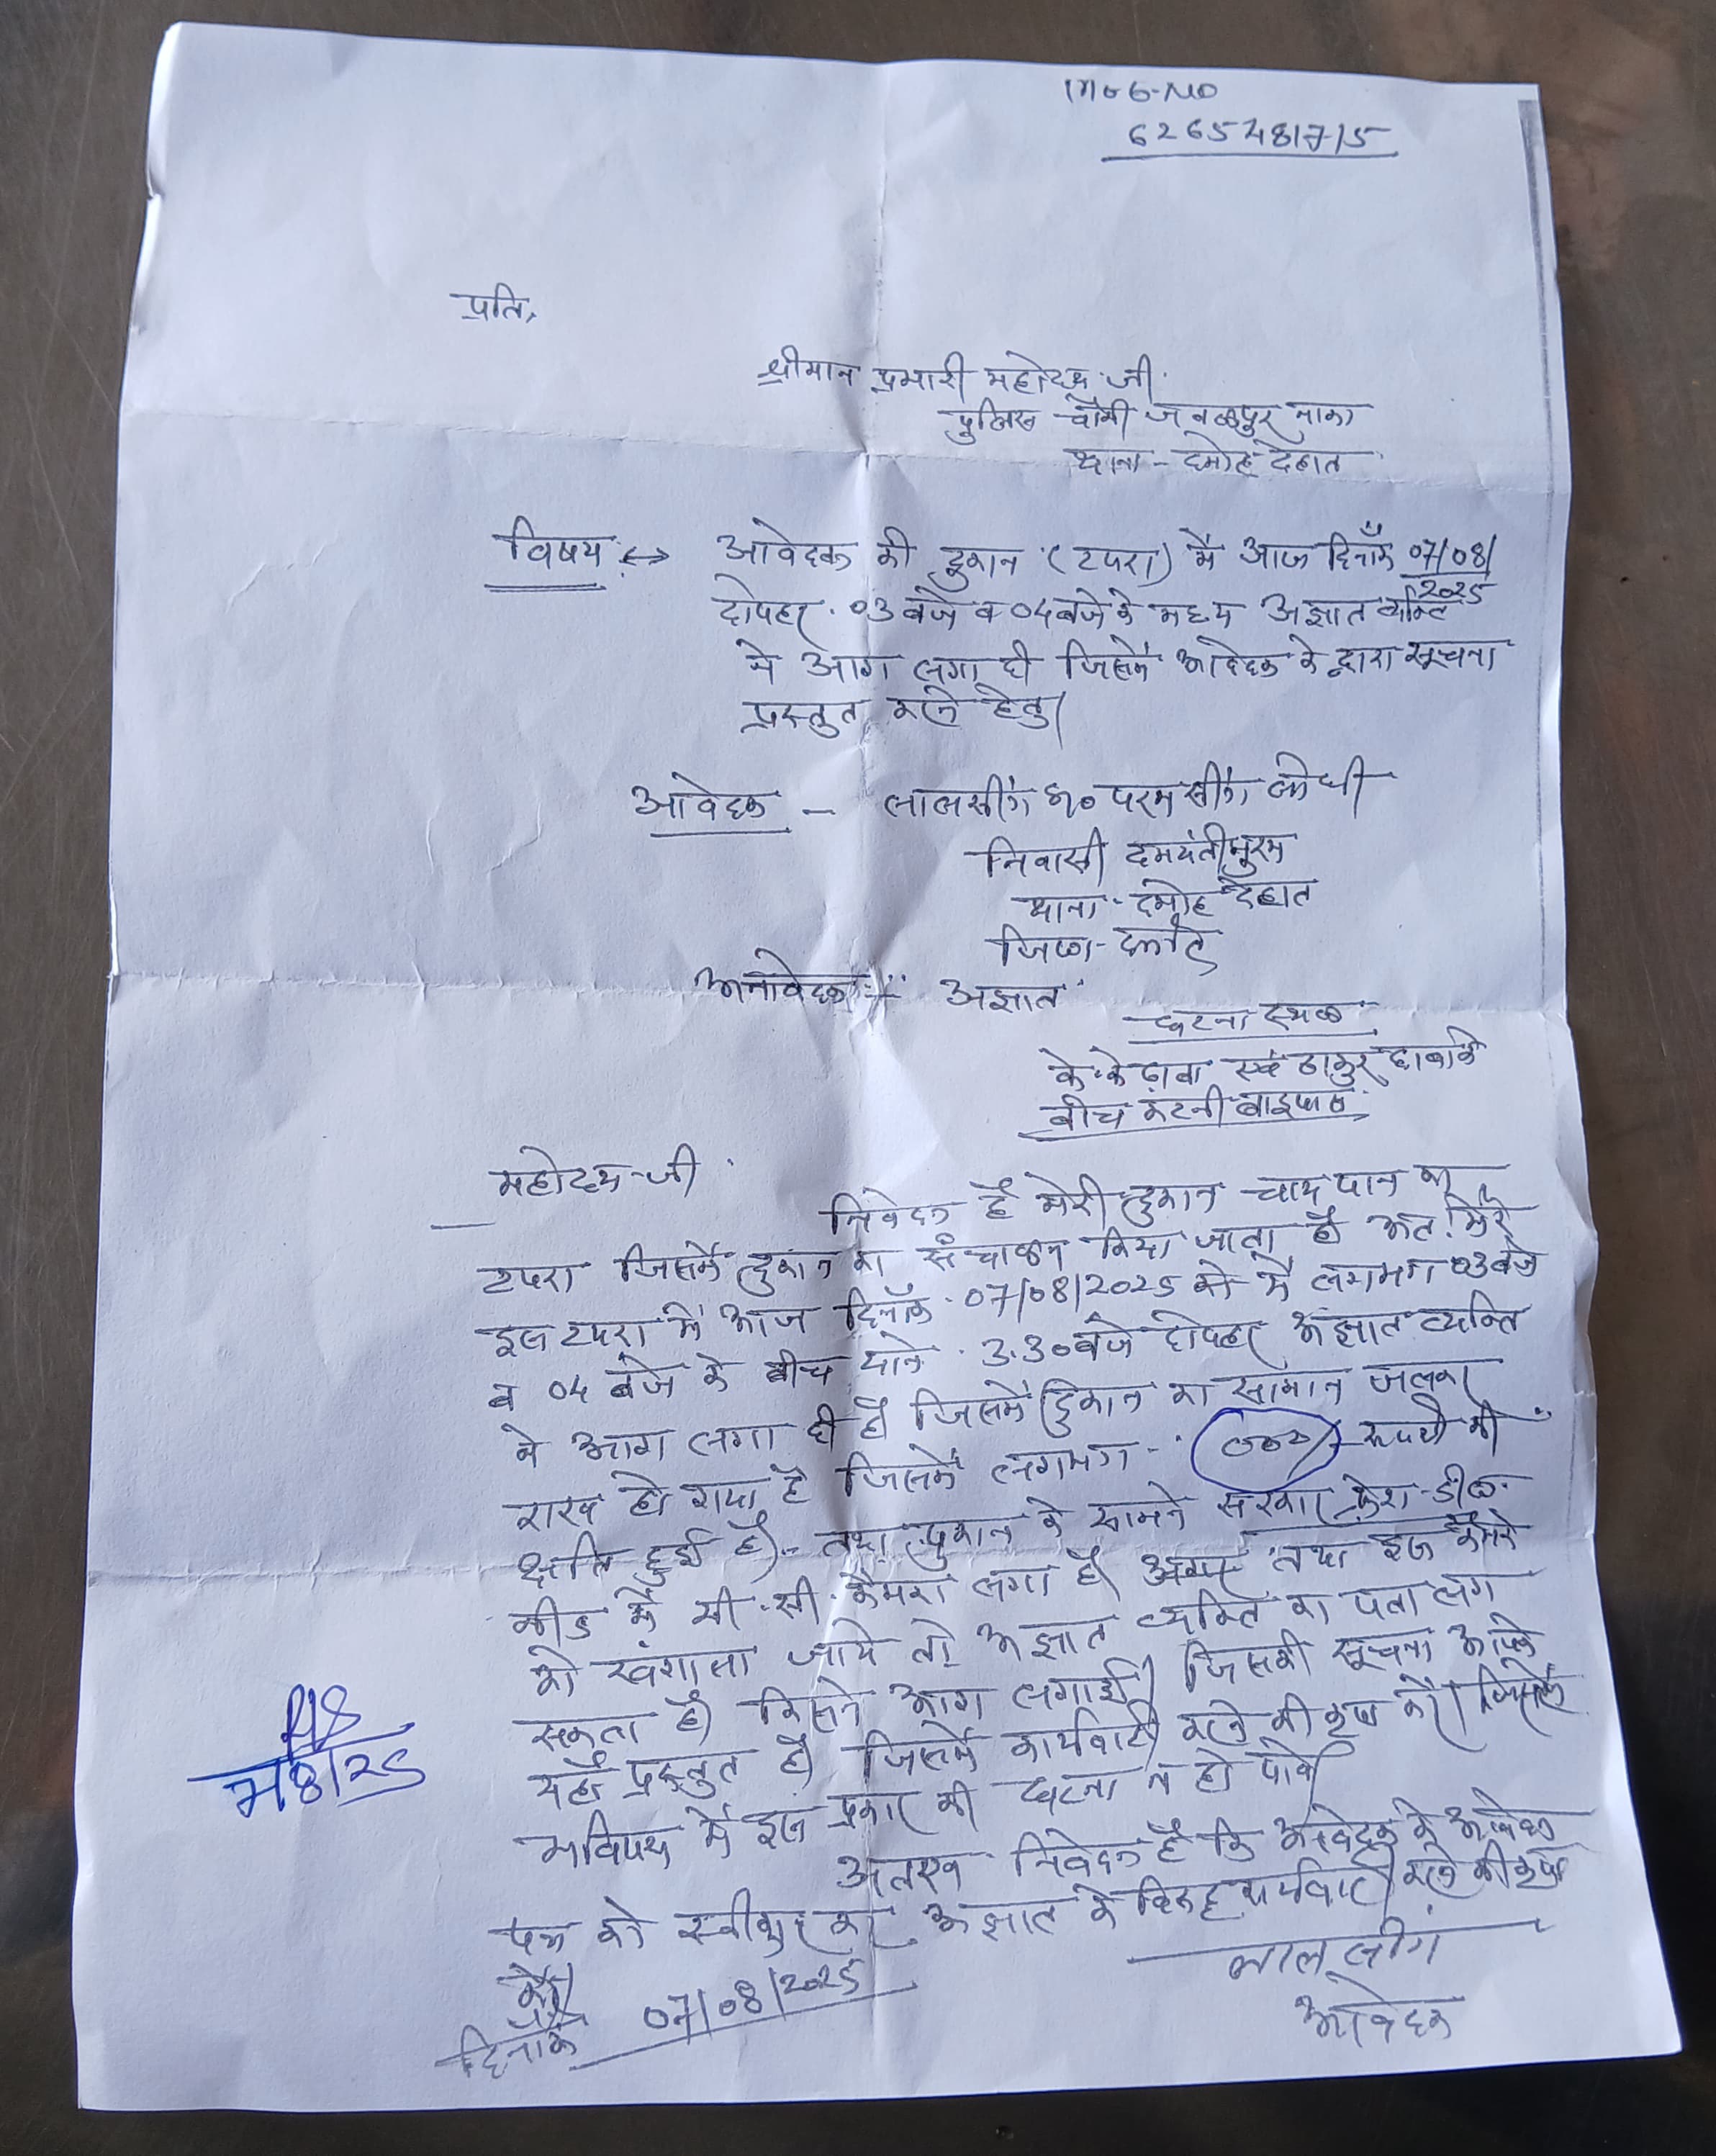 Mob-No
6265481715
प्रति,
श्रीमान प्रभारी महोदय जी
पुलिस चौकी जबलपुर नाका
थाना - दमोह देहात
विषय :-> आवेदक की दुकान (टपरा) में आज दिनाँक 07/08/2025
दोपहर 03 बजे व 04 बजे के मध्य अज्ञात व्यक्ति
ने आग लगा दी जिसमें आवेदक के द्वारा सूचना
प्रस्तुत करने हेतु।
आवेदक - लालसींग S/o परम सींग लोधी
निवासी दमयंतीपुरम
थाना - दमोह देहात
जिला - दमोह
अनावेदक :- अज्ञात
घटना स्थल
के.के ढ़ाबा एवं ठाकुर ढाबा के
बीच कटनी बाइपास
महोदय जी
निवेदन है मेरी दुकान चाय पान का
टपरा जिसमें दुकान का संचालन किया जाता है। अत: मेरे
इस टपरा में आज दिनाँक 07/08/2025 को मैं लगभग 03 बजे
व 04 बजे के बीच याने 3.30 बजे दोपहर अज्ञात व्यक्ति
ने आग लगा दी है। जिसमें दुकान का सामान जलकर
राख हो गया है जिसमें लगभग - रूपये की
क्षति हुई है। तथा दुकान के सामने सरकार
में सी.सी. कैमरा लगा है। तथा इस कैमरे
को खंगाला जाये तो अज्ञात व्यक्ति का पता लग
सकता है। किसने आग लगाई। जिसकी सूचना आपके
यहाँ प्रस्तुत है। जिसमें कार्यवाही करने की कृपा करें। जिससे
भविष्य में इस प्रकार की घटना न हो पावे
अतएव निवेदन है कि आवेदक के आवेदन
पत्र को स्वीकृत कर अज्ञात के विरूद्ध कार्यवाही करने की कृपा
करें।
दिनाँक 07/08/2025
लाल सींग
आवेदक